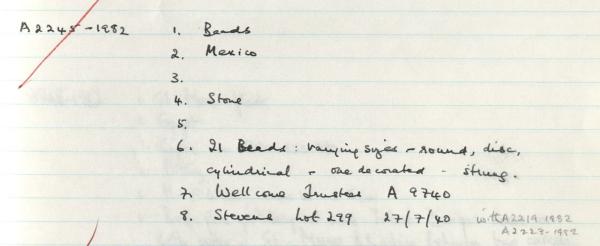 A2245-1982 1. Beads
2. Mexico
3.
4. Stone
5.
6. 21 Beads: varying sizes - round, disc,
cylindrical - one decorated - strung.
7. Wellcome Trustees A 9740
8. Stevens Lot 299 27/7/40 with A2219 1982
A2223-1982